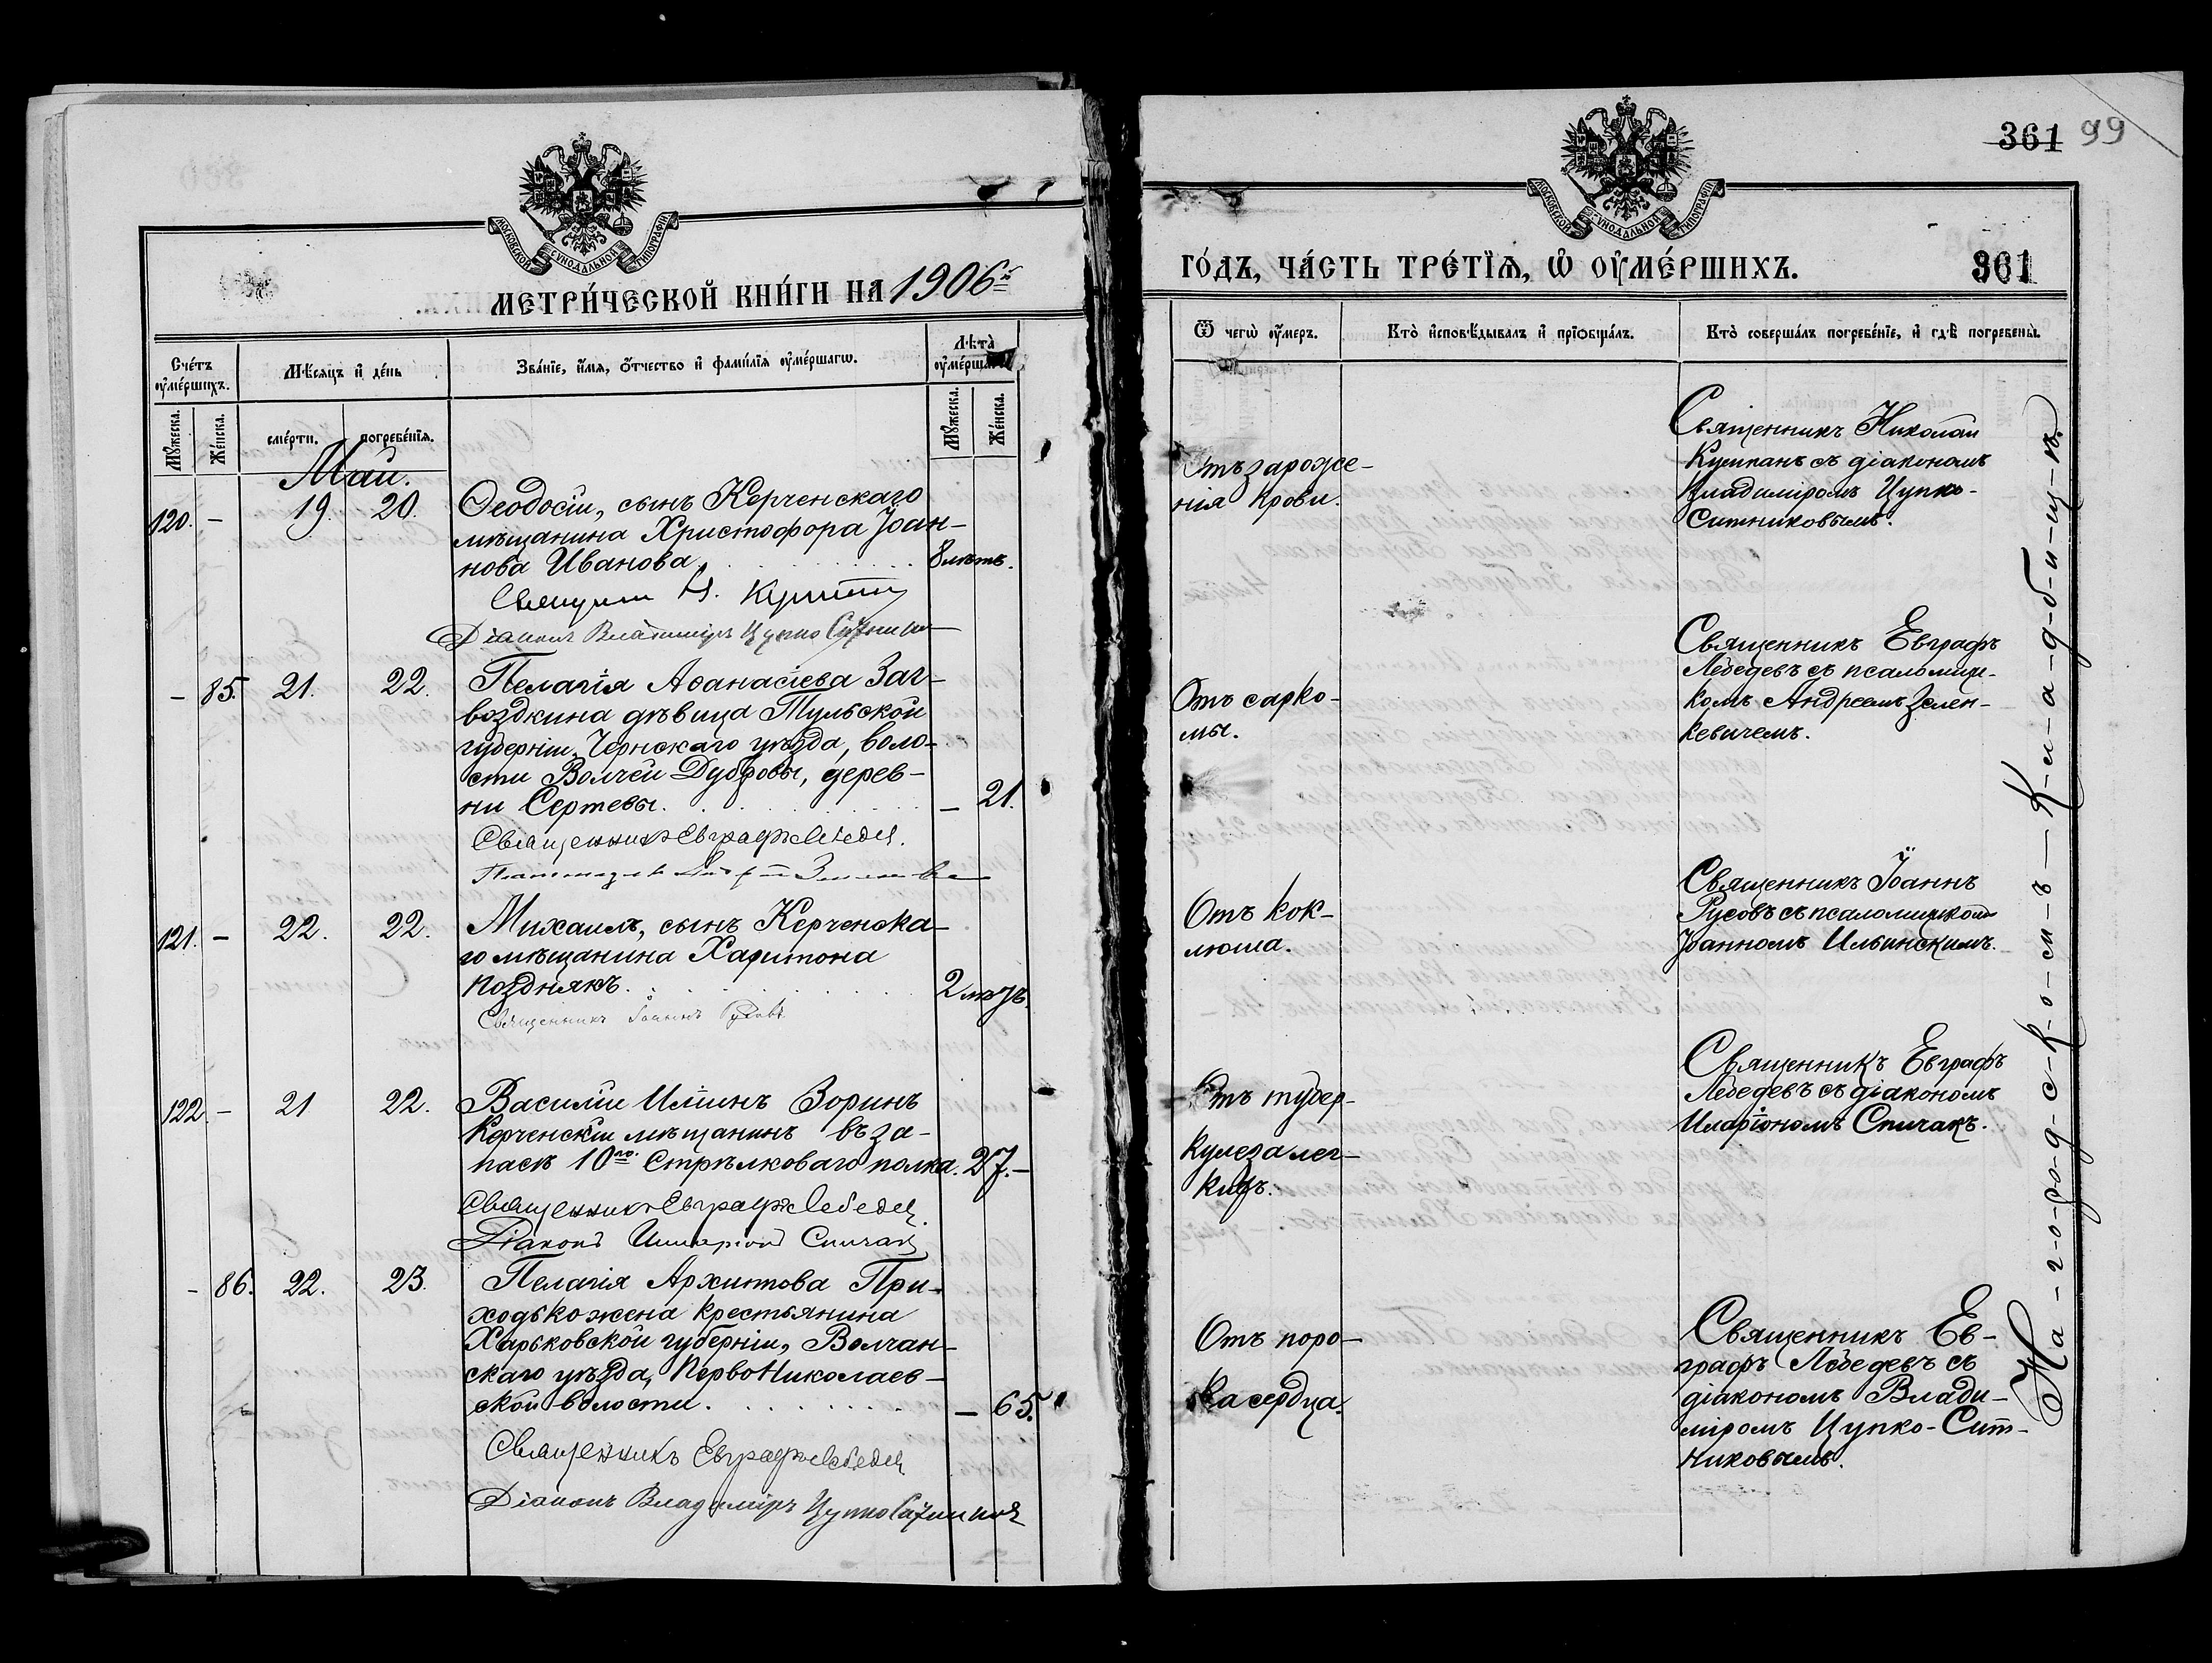 МОСКОВСКОЙ СѴНОДАЛЬНОЙ ТИПОГРАФІИ
МЕТРИ́ЧЕСКОЙ КНИ́ГИ НА 1906й
Сче́тъ ᲂу҆ме́ршихъ.
Мѣ́сяцъ и҆ де́нь
Зва́нїе, и҆́мя, ѻ҆́тчество и҆ фами́лїя ᲂу҆ме́ршагѡ.
Лѣ́та ᲂу҆ме́ршагѡ
Мꙋ́жеска.
Же́нска.
сме́рти.
погребе́нїя.
Мꙋ́жеска.
Же́нска.
Май.
120. – 19. 20. Ѳеодосій, сынъ Керченскаго
мѣщанина Христофора Іоан-
нова Иванова. 8 лѣтъ.
Діаконъ Владиміръ Цупко Ситников
– 85. 21. 22. Пелагія Аѳанасіева Заг-
воздкина дѣвица Тульской
губерніи, Чернскаго уѣзда, воло-
сти Волчей Дубровы, дерев-
ни Сертевы. – 21.
Священникъ Евграфъ Лебедев.
121. – 22. 22. Михаилъ, сынъ Керченска-
го мѣщанина Харитона
Позднякъ. 2 мѣ
Священникъ Іоаннъ Русовъ
122. – 21 22. Василій Иліинъ Зоринъ
Керченскій мѣщанинъ въ за-
пасѣ 10го Стрѣлковаго полка. 27. –
Священникъ Евграфъ Лебедев.
Діаконъ Иларіонъ Спичак
– 86. 22. 23. Пелагія Архипова При-
ходько жена крестьянина
Харьковской губерніи, Волчан-
скаго уѣзда, Перво Николаев-
ской волости. – 65.
Священникъ Евграфъ Лебедев
Діаконъ Владиміръ Цупко Ситников
361 99
МОСКОВСКОЙ СѴНОДАЛЬНОЙ ТИПОГРАФІИ
ГО́ДЪ, ЧА́СТЬ ТРЕ́ТЇѦ, Ѡ҆ ОУ҆МЕ́РШИХЪ.
361
Ѿ чегѡ̀ ᲂу҆́меръ.
Кто̀ и҆сповѣ́дывалъ и҆ прїѻбща́лъ.
Кто̀ соверша́лъ погребе́нїе, и҆ гдѣ̀ погребены̀.
Отъ зараже-
нія крови.
Священникъ Николай
Кушканъ съ діакономъ
Владиміромъ Цупко-
Ситниковымъ.
Отъ сарко-
мы.
Священникъ Евграфъ
Лебедевъ съ псаломщи-
комъ Андреемъ Зелен-
кевичемъ.
Отъ кок-
люша.
Священникъ Іоаннъ
Русовъ съ псаломщикомъ
Іоанномъ Ильинскимъ.
Отъ тубер-
кулеза лег-
кихъ.
Священникъ Евграфъ
Лебедевъ съ діакономъ
Иларіономъ Спичакъ.
Отъ поро-
ка сердца.
Священникъ Ев-
графъ Лебедевъ съ
діакономъ Влади-
міромъ Цупко-Сит-
никовымъ.
На-г-о-р-о-д-с-к-о-м-ъ-К-л-а-д-б-и-щ-ѣ.